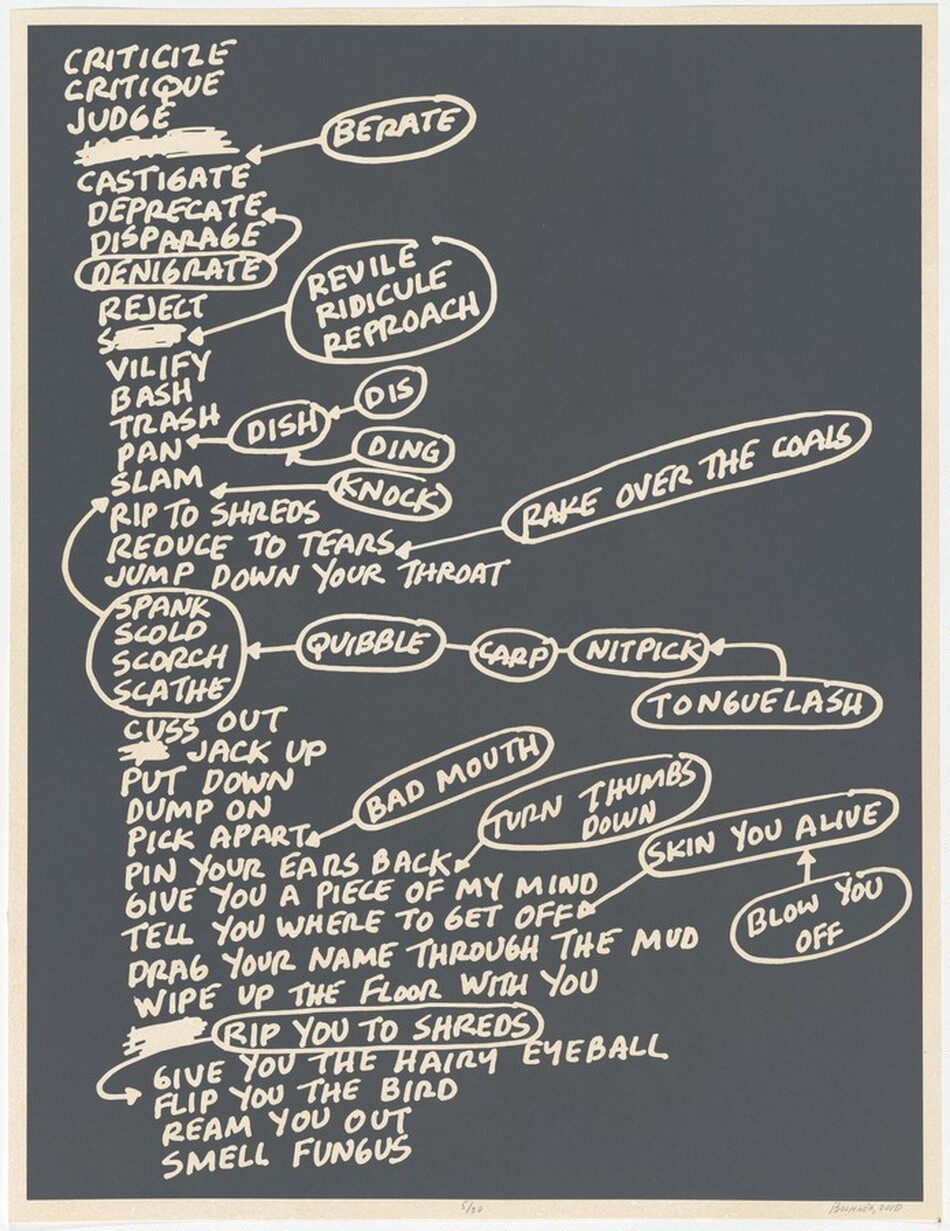 CRITICIZE
CRITIQUE
JUDGE
BERATE
CASTIGATE
DEPRECATE
DISPARAGE
DENIGRATE
REVILE
RIDICULE
REPROACH
REJECT
S
VILIFY
BASH
TRASH
DIS
DISH
DING
PAN
SLAM
KNOCK
RIP TO SHREDS
RAKE OVER THE COALS
REDUCE TO TEARS
JUMP DOWN YOUR THROAT
SPANK
SCOLD
SCORCH
SCATHE
QUIBBLE
CARP
NITPICK
TONGUELASH
CUSS OUT
JACK UP
PUT DOWN
DUMP ON
BAD MOUTH
PICK APART
TURN THUMBS
DOWN
PIN YOUR EARS BACK
SKIN YOU ALIVE
GIVE YOU A PIECE OF MY MIND
TELL YOU WHERE TO GET OFF
BLOW YOU
OFF
DRAG YOUR NAME THROUGH THE MUD
WIPE UP THE FLOOR WITH YOU
RIP YOU TO SHREDS
GIVE YOU THE HAIRY EYEBALL
FLIP YOU THE BIRD
REAM YOU OUT
SMELL FUNGUS
5/20
Bochner, 2010